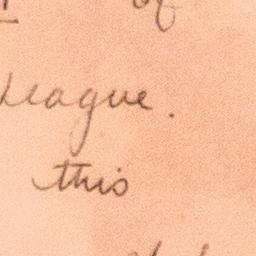 of
League.
this